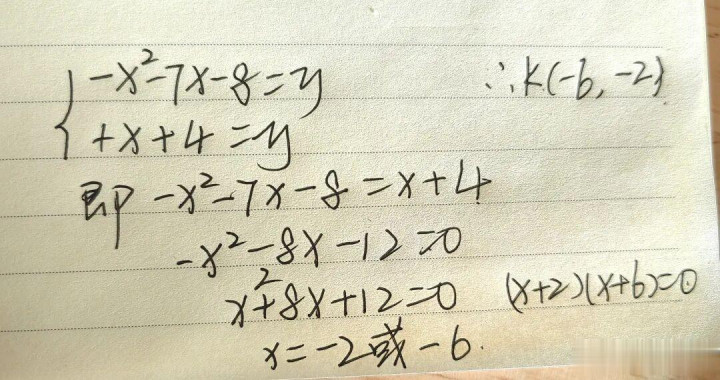 -x²-7x-8=y
+x+4=y
∴K(-6,-2)
即 -x²-7x-8=x+4
-x²-8x-12=0
x²+8x+12=0 (x+2)(x+6)=0
x=-2或-6.